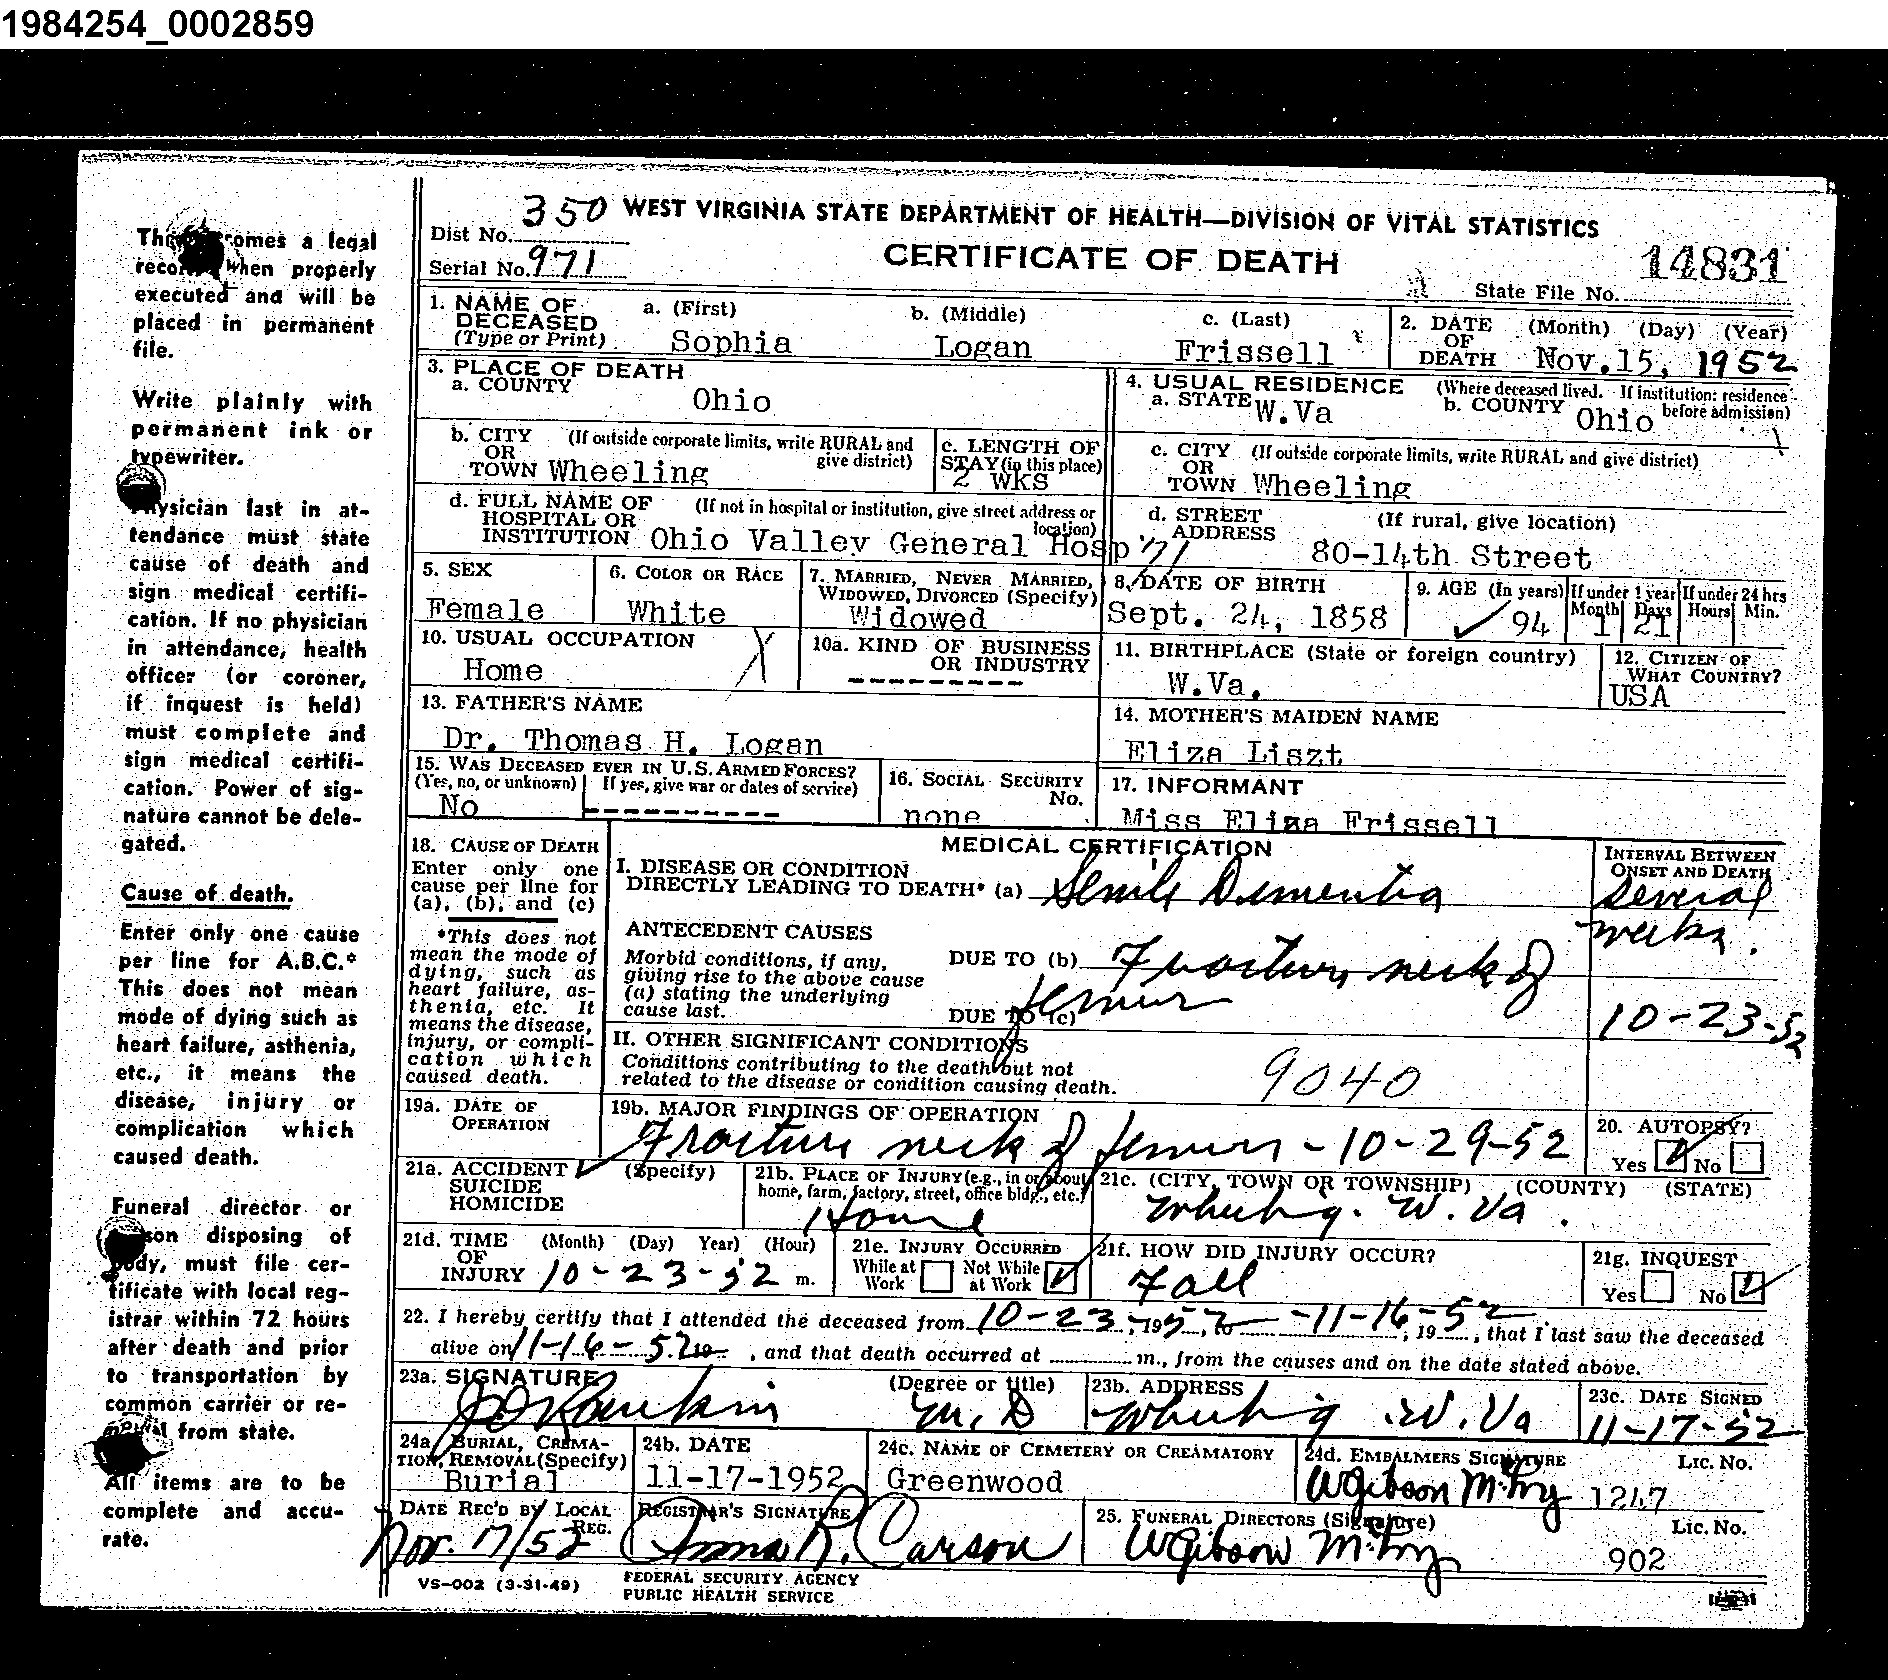 1984254_0002859
This becomes a legal
record when properly
executed and will be
placed in permanent
file.
Write plainly with
permanent ink or
typewriter.
Physician last in at-
tendance must state
cause of death and
sign medical certifi-
cation. If no physician
in attendance, health
officer (or coroner,
if inquest is held)
must complete and
sign medical certifi-
cation. Power of sig-
nature cannot be dele-
gated.
Cause of death.
Enter only one cause
per line for A.B.C.*
This does not mean
mode of dying such as
heart failure, asthenia,
etc., it means the
disease, injury or
complication which
caused death.
Funeral director or
person disposing of
body, must file cer-
tificate with local reg-
istrar within 72 hours
after death and prior
to transportation by
common carrier or re-
moval from state.
All items are to be
complete and accu-
rate.
350 WEST VIRGINIA STATE DEPARTMENT OF HEALTH—DIVISION OF VITAL STATISTICS
Dist No.
Serial No. 971
CERTIFICATE OF DEATH
14831
State File No.
1. NAME OF DECEASED (Type or Print)
a. (First) Sophia
b. (Middle) Logan
c. (Last) Frissell
2. DATE OF DEATH (Month) (Day) (Year) Nov.15, 1952
3. PLACE OF DEATH
a. COUNTY Ohio
4. USUAL RESIDENCE (Where deceased lived. If institution: residence before admission)
a. STATE W.Va
b. COUNTY Ohio
b. CITY OR TOWN (If outside corporate limits, write RURAL and give district) Wheeling
c. LENGTH OF STAY (in this place) 2 WKS
c. CITY OR TOWN (If outside corporate limits, write RURAL and give district) Wheeling
d. FULL NAME OF HOSPITAL OR INSTITUTION (If not in hospital or institution, give street address or location) Ohio Valley General Hosp
d. STREET ADDRESS (If rural, give location) 80-14th Street
5. SEX Female
6. COLOR OR RACE White
7. MARRIED, NEVER MARRIED, WIDOWED, DIVORCED (Specify) Widowed
8. DATE OF BIRTH Sept. 24, 1858
9. AGE (In years) 94
If under 1 year Month 1 Days 21
If under 24 hrs Hours Min.
10. USUAL OCCUPATION Home
10a. KIND OF BUSINESS OR INDUSTRY ---------
11. BIRTHPLACE (State or foreign country) W.Va.
12. CITIZEN OF WHAT COUNTRY? USA
13. FATHER'S NAME Dr. Thomas H. Logan
14. MOTHER'S MAIDEN NAME Eliza Liszt
15. WAS DECEASED EVER IN U.S. ARMED FORCES? (Yes, no, or unknown) No
If yes, give war or dates of service) ----------
16. SOCIAL SECURITY No. none
17. INFORMANT Miss Eliza Frissell
18. CAUSE OF DEATH
Enter only one
cause per line for
(a), (b), and (c)
*This does not
mean the mode of
dying, such as
heart failure, as-
thenia, etc. It
means the disease,
injury, or compli-
cation which
caused death.
MEDICAL CERTIFICATION
INTERVAL BETWEEN ONSET AND DEATH
I. DISEASE OR CONDITION
DIRECTLY LEADING TO DEATH* (a) Senile Dementia
several weeks.
ANTECEDENT CAUSES
Morbid conditions, if any,
giving rise to the above cause
(a) stating the underlying
cause last.
DUE TO (b) Fracture neck of
DUE TO (c) femur
10-23-52
II. OTHER SIGNIFICANT CONDITIONS
Conditions contributing to the death but not
related to the disease or condition causing death.
9040
19a. DATE OF OPERATION
19b. MAJOR FINDINGS OF OPERATION
Fracture neck of femur - 10-29-52
20. AUTOPSY?
Yes No
21a. ACCIDENT SUICIDE HOMICIDE (Specify)
21b. PLACE OF INJURY (e.g., in or about home, farm, factory, street, office bldg., etc.) Home
21c. (CITY, TOWN OR TOWNSHIP) (COUNTY) (STATE)
Wheeling. W. Va.
21d. TIME OF INJURY (Month) (Day) Year) (Hour) 10-23-52 m.
21e. INJURY OCCURRED
While at Work Not While at Work
21f. HOW DID INJURY OCCUR?
Fall
21g. INQUEST
Yes No
22. I hereby certify that I attended the deceased from 10-23, 1952, to -11-16-52, 19, that I last saw the deceased
alive on 11-16-52 19, and that death occurred at m., from the causes and on the date stated above.
23a. SIGNATURE (Degree or title) Rankin M.D
23b. ADDRESS Wheeling W. Va
23c. DATE SIGNED 11-17-52
24a. BURIAL, CREMATION, REMOVAL (Specify) Burial
24b. DATE 11-17-1952
24c. NAME OF CEMETERY OR CREAMATORY Greenwood
24d. EMBALMERS SIGNATURE LIC. NO. 1247
DATE REC'D BY LOCAL REG. Nov. 17/52
REGISTRAR'S SIGNATURE Anna R. Carson
25. FUNERAL DIRECTORS (Signature) LIC. NO. 902
VS-002 (3-31-49)
FEDERAL SECURITY AGENCY
PUBLIC HEALTH SERVICE